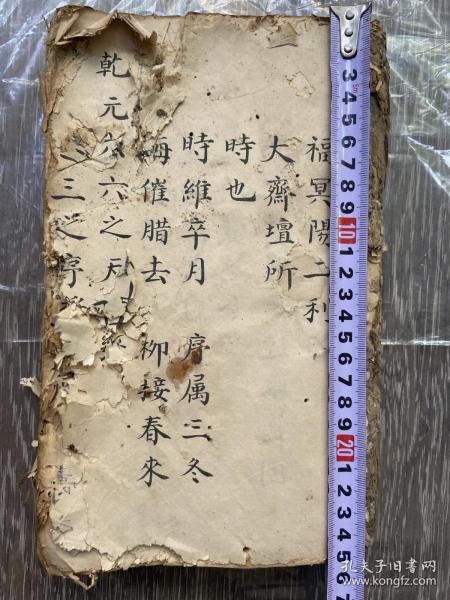 福冥陽二利
大齋壇所
時也
時維卒月 序属三冬
梅催腊去 柳接春來
乾元 六之天
三之序
3 4 5 6 7 8 9 10 1 2 3 4 5 6 7 8 9 20 1 2 3 4 5 6 7
5m
孔夫子旧书网
kongfz.com